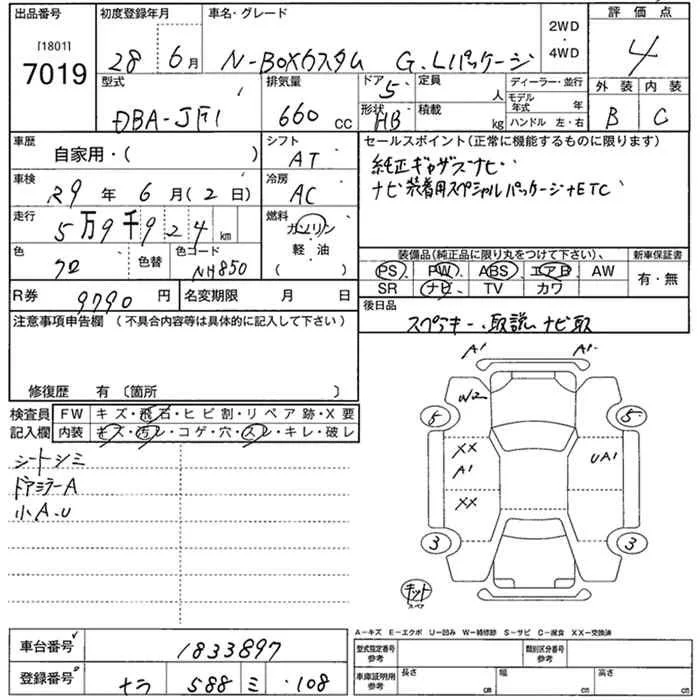 出品番号 初度登録年月 車名・グレード 評価点
[1801]
7019
28 6月 N-BOXカスタム G.Lパッケージ 2WD 4WD 4
型式 排気量 ドア 定員 ディーラー・並行 外装 内装
DBA-JF1 660 CC 5 人 モデル年式 年 B C
形状 積載 ハンドル 左・右
HB kg
車歴 シフト セールスポイント(正常に機能するものに限ります)
自家用・( ) AT 純正ギャザズナビ
車検 冷房 ナビ装着用スペシャルパッケージ+ETC
R9年 6月(2日) AC
走行 燃料
5万9千924km ガソリン
軽・油
( )
色 色替 色コード 装備品(純正品に限り丸をつけて下さい)、 新車保証書
クロ NH850 PS PW ABS エアB AW 有・無
SR ナビ TV カワ
R券 9790円 名変期限 月 日 後日品
スペアキー、取説、ナビ取
注意事項申告欄(不具合内容等は具体的に記入して下さい)
修復歴 有〔箇所 〕
検査員 FW キズ・飛石・ヒビ割・リペア跡・X要
記入欄 内装 キズ・汚レ・コゲ・穴・スレ・キレ・破レ
シートシミ
ドアミラーA
小A.U
A1 A1
W2
5 5
XX
A1 UA1
XX
3 3
キット
スペア
A-キズ E-エクボ U-凹み W-補修跡 S-サビ C-腐食 XX-交換済
車台番号 1833897 型式指定番号 参考 類別区分番号 参考
登録番号 ナラ 588 ミ ・108 車庫証明用 参考 長さ cm 幅 cm 高さ cm